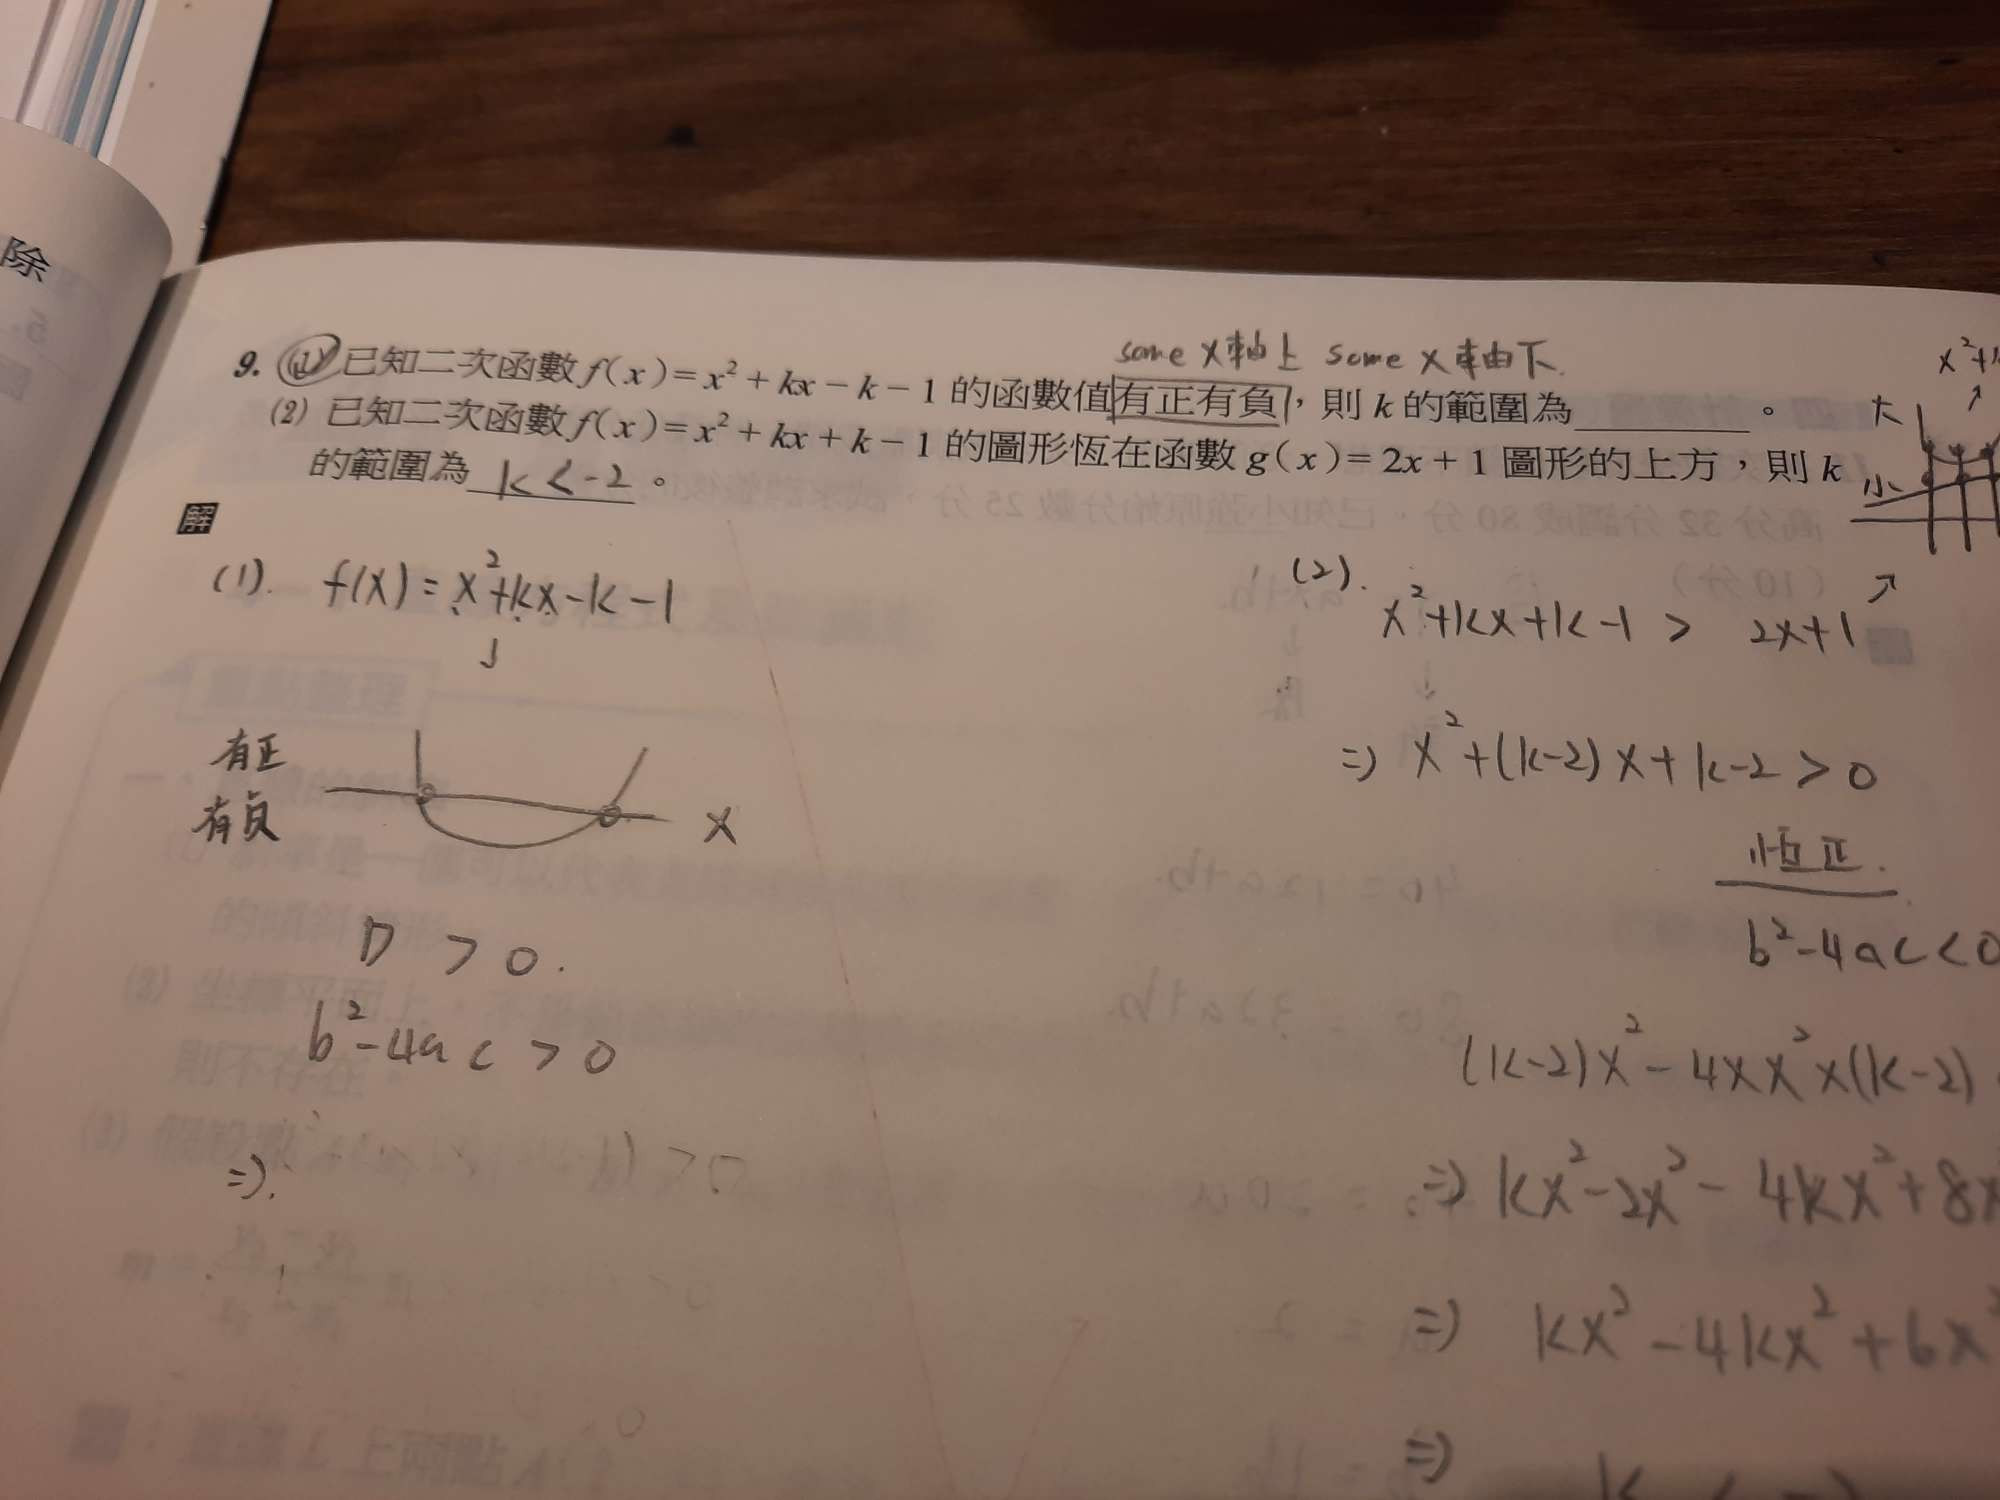 除
some X軸上 some X軸下.
9. (1) 已知二次函數 f(x)=x²+kx−k−1 的函數值有正有負，則 k 的範圍為________。
(2) 已知二次函數 f(x)=x²+kx+k−1 的圖形恆在函數 g(x)=2x+1 圖形的上方，則 k
的範圍為 k<-2 。
大
小
解
(1). f(x)=x²+kx-k-1
有正
有負
X
D > 0.
b²-4ac>0
=>.
(2). x²+kx+k-1 > 2x+1
=> x²+(k-2)x+k-2>0
恆正.
b²-4ac<0
(k-2)x²-4xx²x(k-2)
=> kx²-2x²-4kx²+8x
=> kx²-4kx²+6x²
=>